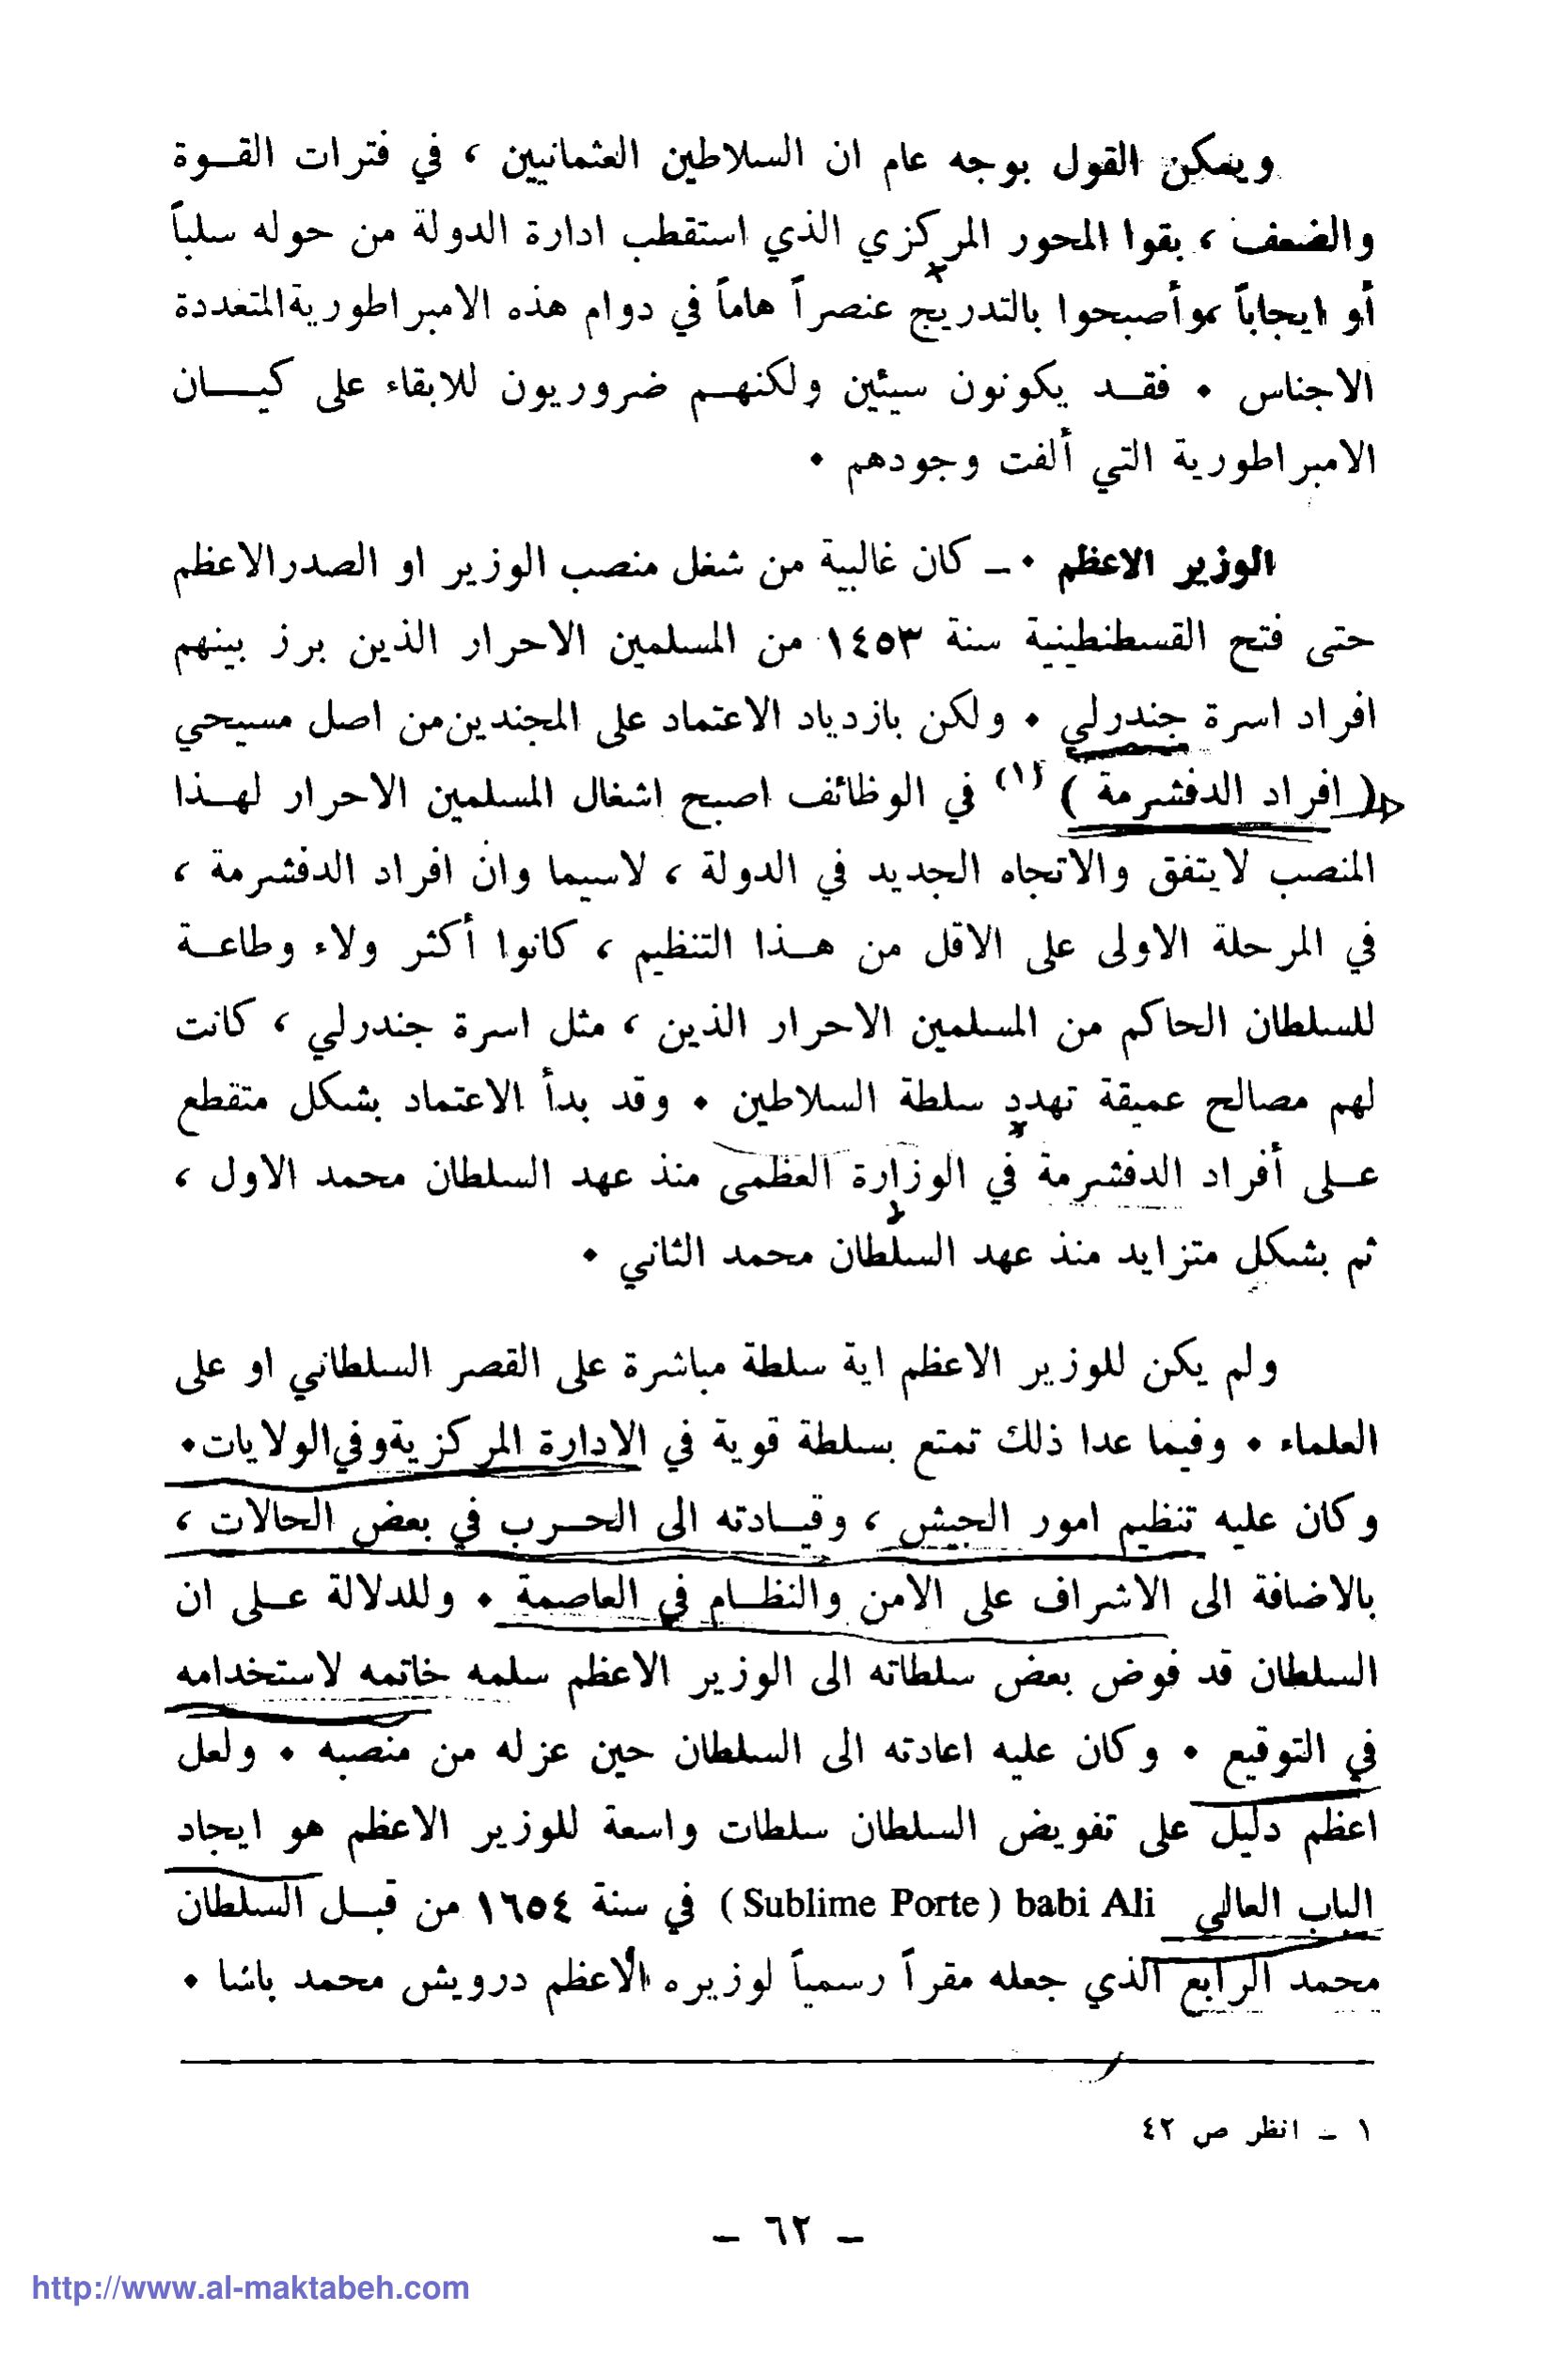 ويمكن القول بوجه عام ان السلاطين العثمانيين ، في فترات القــوة
والضعف ، بقوا المحور المركزي الذي استقطب ادارة الدولة من حوله سلباً
أو ايجاباً ،وأصبحوا بالتدريج عنصراً هاماً في دوام هذه الامبراطوريةالمتعددة
الاجناس . فقــد يكونون سيئين ولكنهــم ضروريون للابقاء على كيــــان
الامبراطورية التي ألفت وجودهم .
الوزير الاعظم . ــ كان غالبية من شغل منصب الوزير او الصدرالاعظم
حتى فتح القسطنطينية سنة ١٤٥٣ من المسلمين الاحرار الذين برز بينهم
افراد اسرة جندرلي . ولكن بازدياد الاعتماد على المجندين من اصل مسيحي
( افراد الدفشرمة ) (١) في الوظائف اصبح اشغال المسلمين الاحرار لهــذا
المنصب لايتفق والاتجاه الجديد في الدولة ، لاسيما وان افراد الدفشرمة ،
في المرحلة الاولى على الاقل من هــذا التنظيم ، كانوا أكثر ولاء وطاعــة
للسلطان الحاكم من المسلمين الاحرار الذين ، مثل اسرة جندرلي ، كانت
لهم مصالح عميقة تهدد سلطة السلاطين . وقد بدأ الاعتماد بشكل متقطع
عــلى أفراد الدفشرمة في الوزارة العظمى منذ عهد السلطان محمد الاول ،
ثم بشكل متزايد منذ عهد السلطان محمد الثاني .
ولم يكن للوزير الاعظم اية سلطة مباشرة على القصر السلطاني او على
العلماء . وفيما عدا ذلك تمتع بسلطة قوية في الادارة المركزيةوفي الولايات.
وكان عليه تنظيم امور الجيش ، وقيــادته الى الحــرب في بعض الحالات ،
بالاضافة الى الاشراف على الامن والنظــام في العاصمة . وللدلالة عــلى ان
السلطان قد فوض بعض سلطاته الى الوزير الاعظم سلمه خاتمه لاستخدامه
في التوقيع . وكان عليه اعادته الى السلطان حين عزله من منصبه . ولعل
اعظم دليل على تفويض السلطان سلطات واسعة للوزير الاعظم هو ايجاد
الباب العالي babi Ali ( Sublime Porte ) في سنة ١٦٥٤ من قبــل السلطان
محمد الرابع الذي جعله مقراً رسمياً لوزيره الاعظم درويش محمد باشا .
١ ــ انظر ص ٤٢
ــ ٦٢ ــ
http://www.al-maktabeh.com